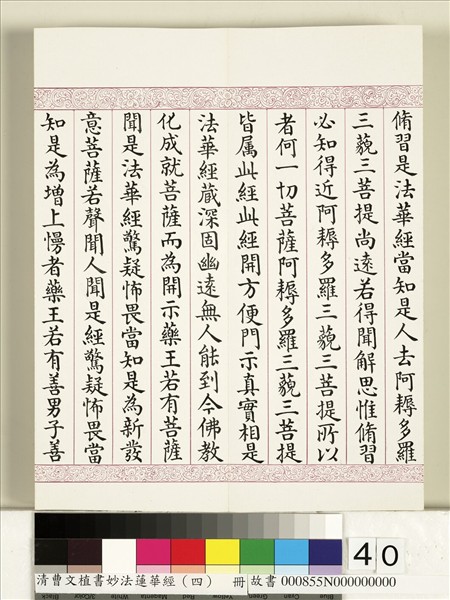 脩習是法華經當知是人去阿耨多羅
三藐三菩提尚遠若得聞解思惟脩習
必知得近阿耨多羅三藐三菩提所以
者何一切菩薩阿耨多羅三藐三菩提
皆属此經此經開方便門示真實相是
法華經蔵深固幽遠無人能到今佛教
化成就菩薩而為開示藥王若有菩薩
聞是法華經驚疑怖畏當知是為新發
意菩薩若聲聞人聞是經驚疑怖畏當
知是為增上慢者藥王若有善男子善
40
清曹文植書妙法蓮華經（四） 冊 故書 000855N000000000